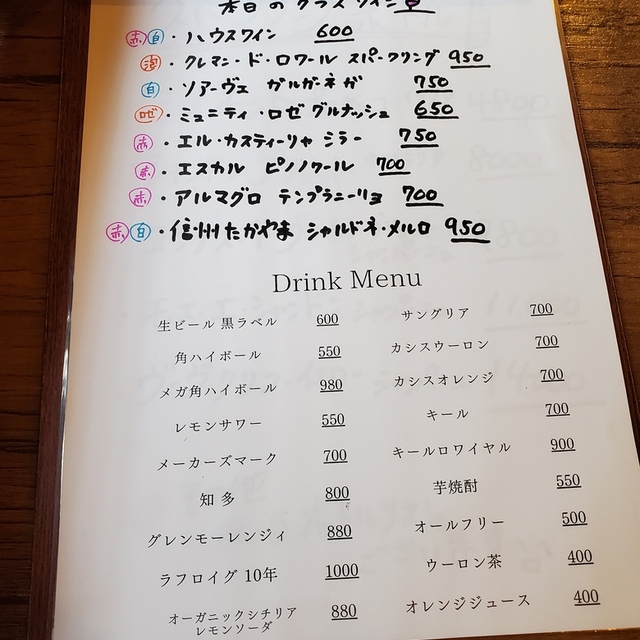 本日のグラスワイン
赤 白・ハウスワイン 600
泡・クレマン・ド・ロワール スパークリング 950
白・ソアーヴェ ガルガーネガ 750
ロゼ・ミュニティ・ロゼ グルナッシュ 650
赤・エル・カスティーリャ シラー 750
赤・エスカル ピノノワール 700
赤・アルマグロ テンプラニーリョ 700
赤 白・信州たかやま シャルドネ・メルロ 950
Drink Menu
生ビール 黒ラベル 600
角ハイボール 550
メガ角ハイボール 980
レモンサワー 550
メーカーズマーク 700
知多 800
グレンモーレンジィ 880
ラフロイグ 10年 1000
オーガニックシチリア
レモンソーダ 880
サングリア 700
カシスウーロン 700
カシスオレンジ 700
キール 700
キールロワイヤル 900
芋焼酎 550
オールフリー 500
ウーロン茶 400
オレンジジュース 400